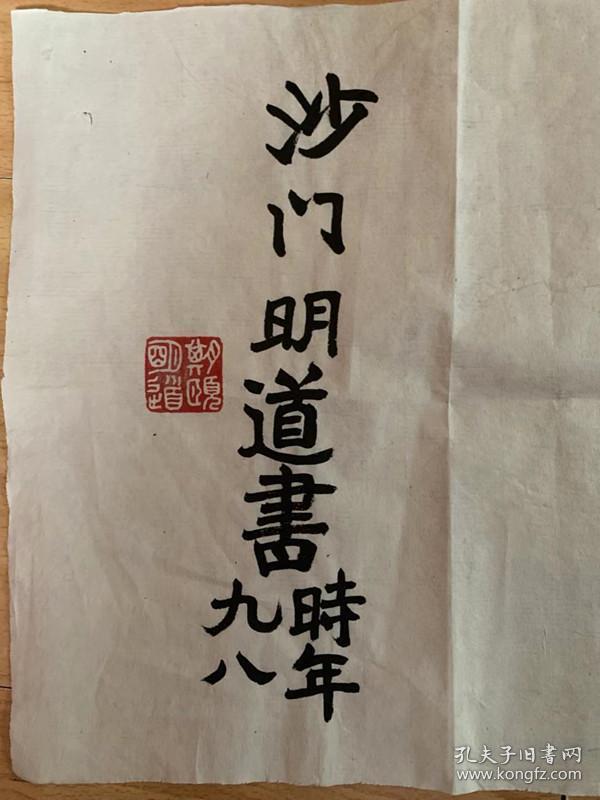 沙门明道書
時年
九八
明道
孔夫子旧书网
www.kongfz.com